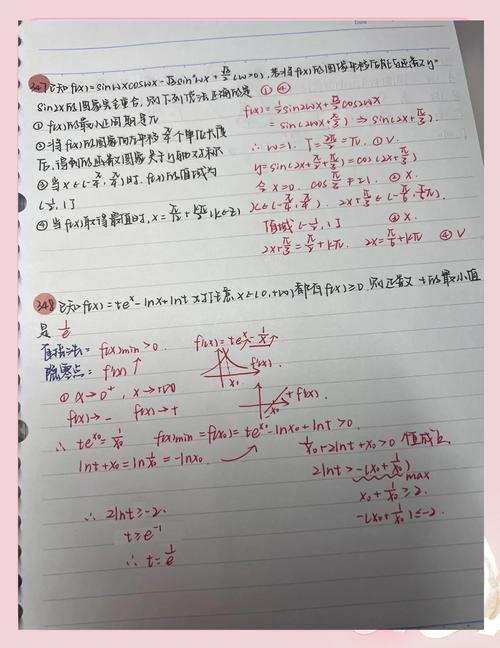 347 已知f(x)=sinwxcoswx-√3sin²wx+√3/2 (w>0),若将f(x)的图像平移后能与函数y=
sin2x的图象完全重合,则下列说法正确的是 ① ④
① f(x)的最小正周期为π
② 将f(x)的图象向左平移π/4个单位长度
后,得到的函数图象关于y轴对称
③ 当x∈(-π/4, π/4)时,f(x)的值域为
(-1/2, 1]
④ 当f(x)取得最值时,x=π/12+kπ/2 (k∈Z)
f(x)=1/2sin2wx+√3/2cos2wx
=sin(2wx+π/3) → sin(2x+π/3)
∴ w=1. T=2π/2=π. ① √.
y=sin(2x+π/2+π/3)=cos(2x+π/3)
令x=0. cosπ/3≠±1. ② ×.
x∈(-π/4, π/4). 2x+π/3∈(-π/6, 5/6π).
值域(-1/2, 1] ③ ×.
2x+π/3=π/2+kπ. 2x=π/6+kπ ④ √
348 已知f(x)=te^x-lnx+lnt 对任意x∈(0,+∞)都有f(x)≥0.则正实数t的最小值
是 1/e
直接法: f(x)min>0.
隐零点: f'(x)↑
① x→0⁺, x→+∞
f'(x)→- f'(x)→+
f'(x)=te^x-1/x↑
f(x).
x₀
+ f'(x).
x₀
∴ te^x₀=1/x₀ f(x)min=f(x₀)=te^x₀-lnx₀+lnt>0
lnt+x₀=ln1/x₀=-lnx₀
1/x₀+2lnt+x₀>0 恒成立.
2lnt>-(x₀+1/x₀)
max
x₀+1/x₀≥2.
-(x₀+1/x₀)≤-2.
∴ 2lnt≥-2.
t≥e⁻¹
∴ t=1/e